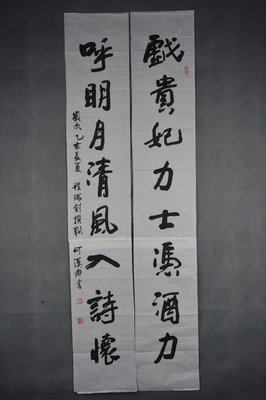 戲貴妃力士馮酒力
呼明月清風入詩懷
歲次乙亥長夏 程瑞釗撰聯 何漢卿書